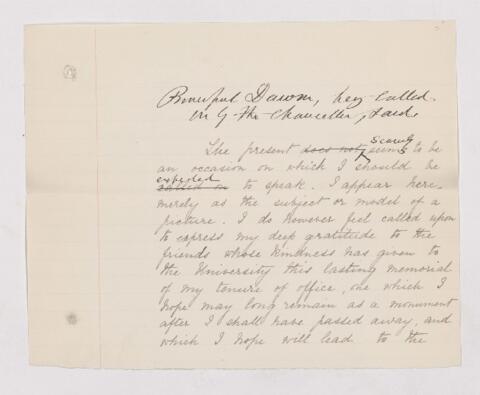 Principal Dawson, being called
on by the Chancellor, said
The present does not scarcely seems to be
an occasion on which I should be
expected
called on to speak. I appear here
merely as the subject or model of a
picture. I do however feel called upon
to express my deep gratitude to the
friends whose kindness has given to
the University this lasting memorial
of my tenure of office, one which I
hope may long remain as a monument
after I shall have passed away, and
which I hope will lead to the